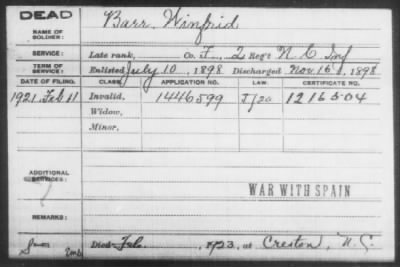 DEAD
NAME OF SOLDIER: Barr, Winfrid
SERVICE: Late rank, Co. F, 2 Reg't N.C. Inf
TERM OF SERVICE: Enlisted July 10, 1898 Discharged Nov 15, 1898
DATE OF FILING. CLASS. APPLICATION NO. LAW. CERTIFICATE NO.
1921 Feb 11 Invalid, 1446599 J/20 1216504
Widow,
Minor,
ADDITIONAL SERVICES:
WAR WITH SPAIN
REMARKS:
Died Feb. 1923, at Creston, N.C.